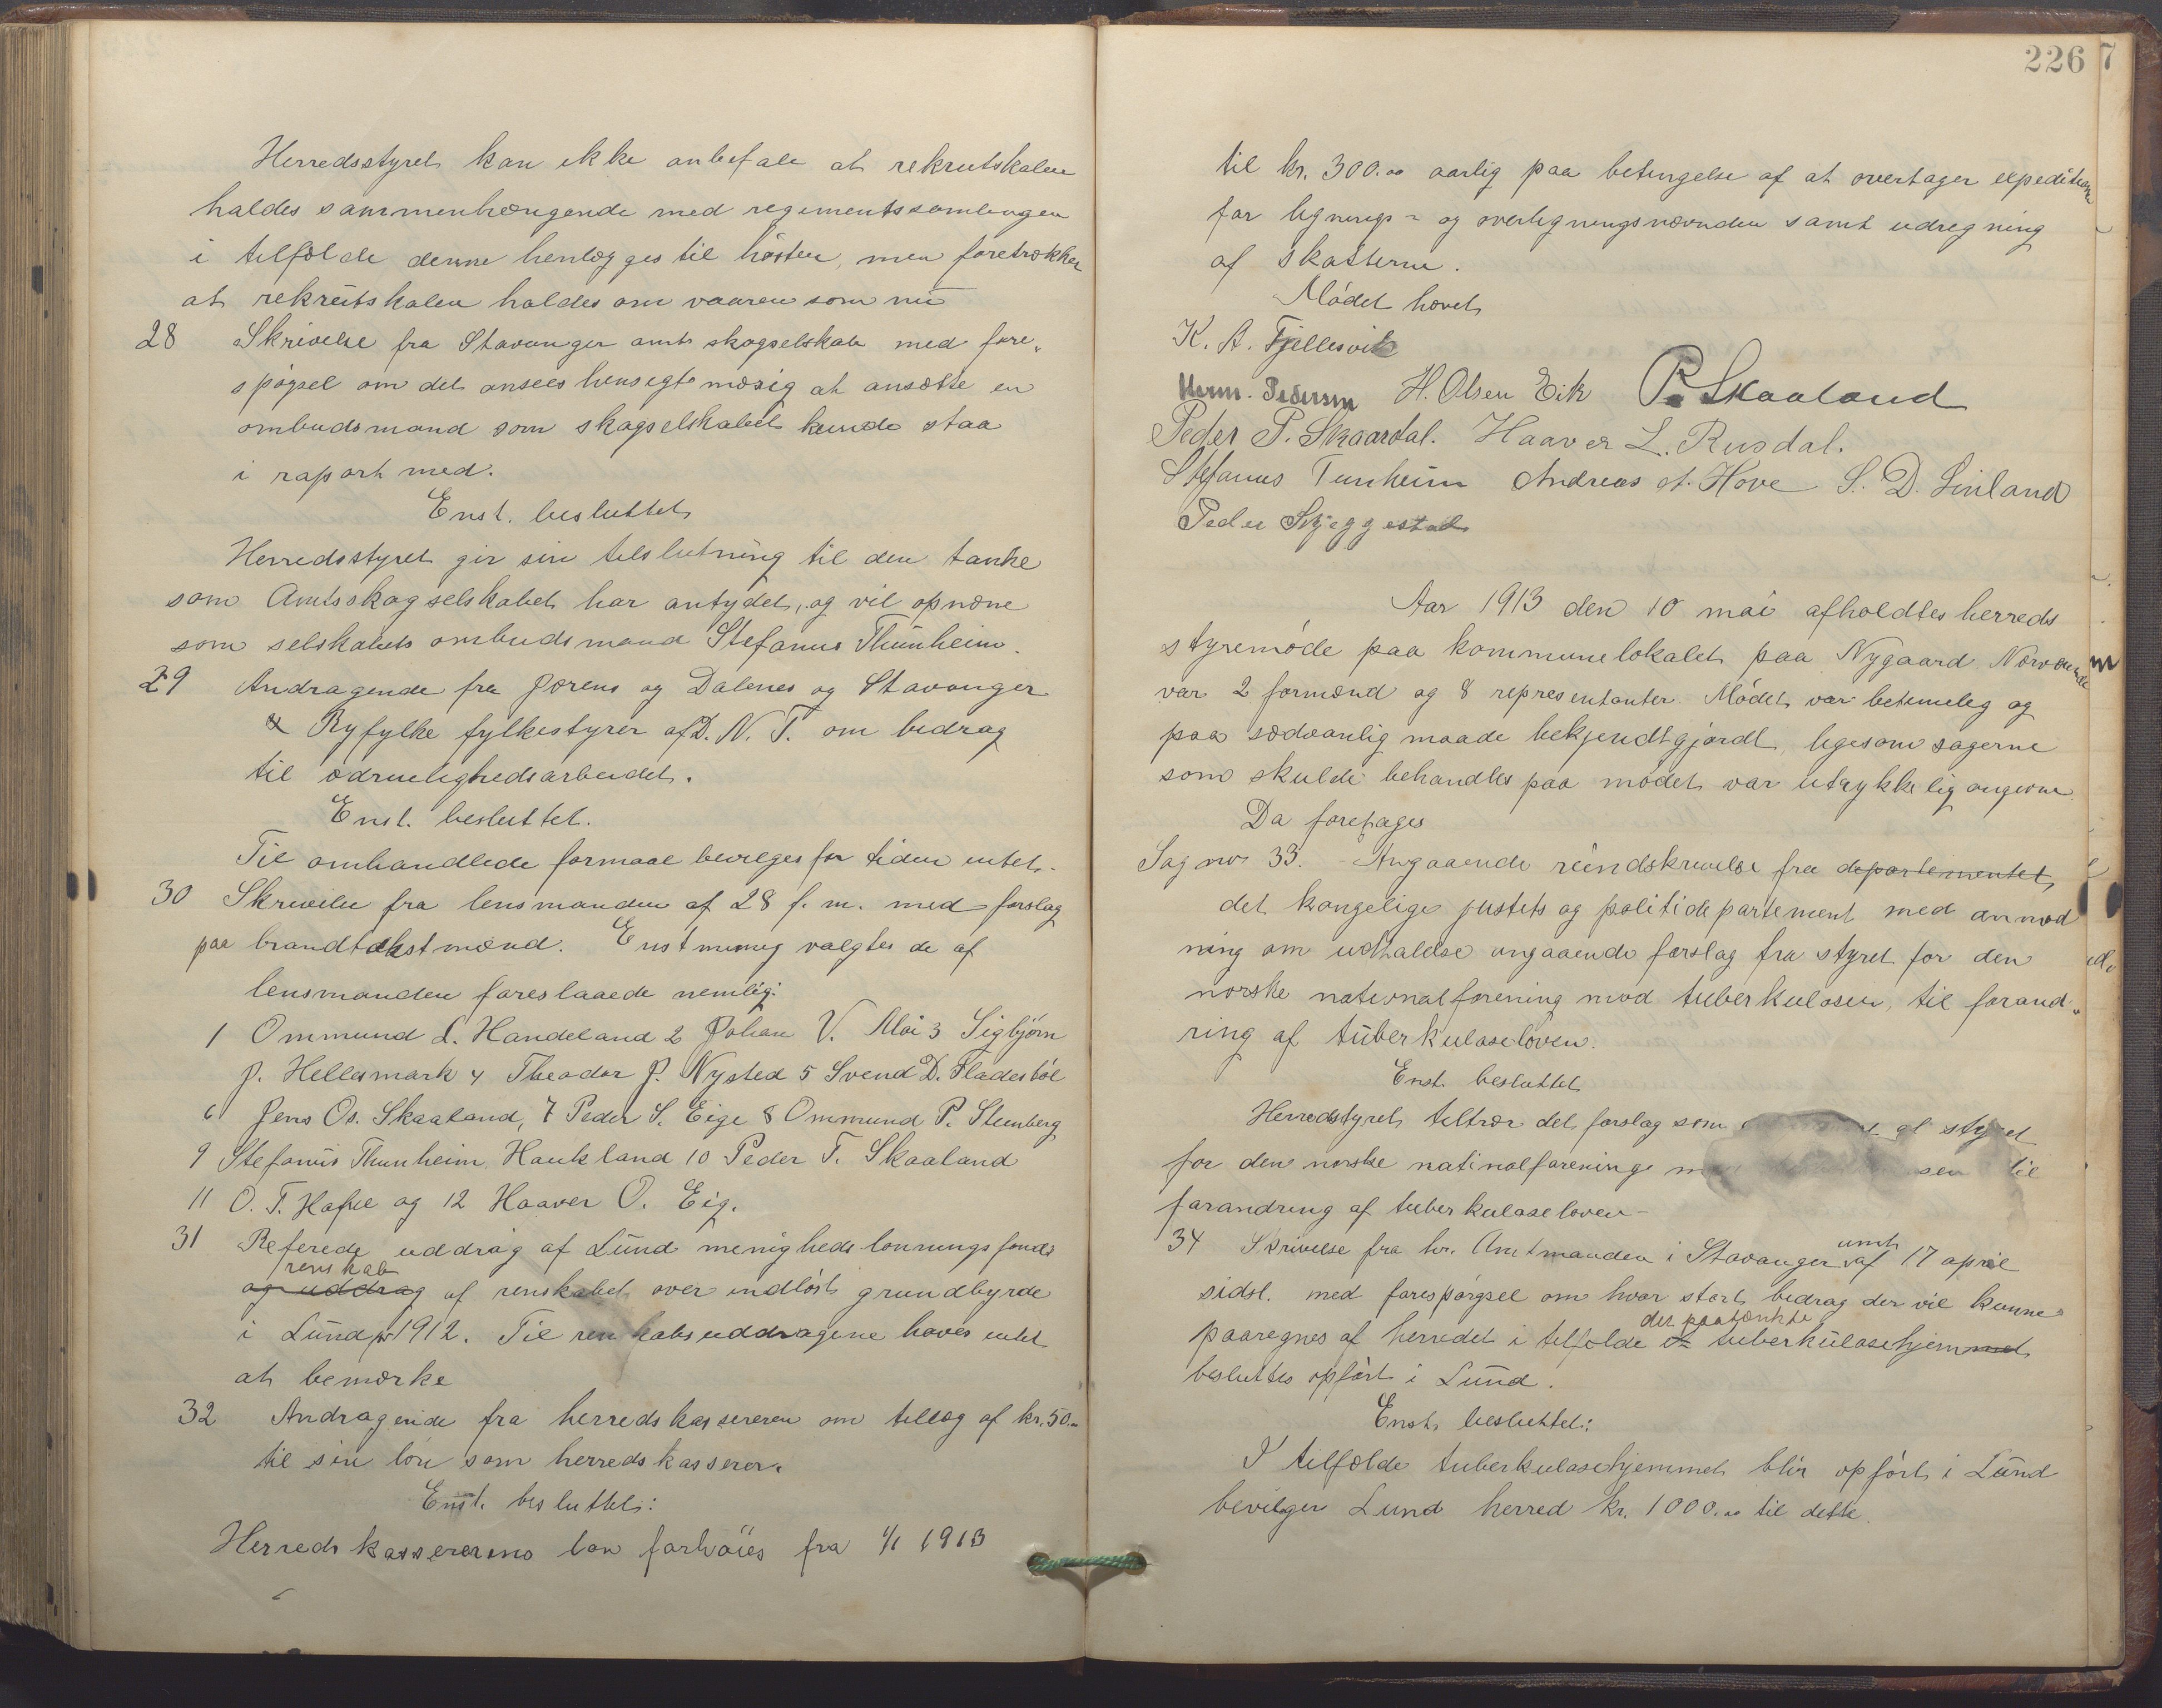 Herredsstyret kan ikke anbefale at rekrutskolen
holdes sammenhængende med regimentssamlingen
i tilfælde denne henlægges til høsten, men foretrækker
at rekrutskolen holdes om vaaren som nu
28 Skrivelse fra Stavanger amts skogselskab med fore-
spøgsel om det ansees hensigtmæsig at ansætte en
ombudsmand som skogselskabet kunde staa
i raport med.
Enst. besluttet
Herredsstyret gir sin tilslutning til den tanke
som Amtsskogselskabet har antydet, og vil opnæne
som selskabets ombudsmand Stefanus Thunheim.
29 Andragende fra Jærens og Dalenes og Stavanger
& Ryfylke fylkestyrer af D. N. T. om bedrag
til ædruelighedsarbeidet.
Enst. besluttet.
Til omhandlede formaal bevilges for tiden intet.
30 Skrivelse fra lensmanden af 28 f. m. med forslag
paa brandtakstmænd. Enstemmig valgtes de af
lensmanden foreslaaede nemlig:
1 Ommund L. Handeland 2 Johan V. Moi 3 Sigbjørn
J. Hellesmark 4 Theodor J. Nysted 5 Svend D. Fladesbøl
6 Jens Os. Skaaland, 7 Peder S. Eige 8 Ommund P. Steinberg
9 Stefanus Thunheim, Haukland 10 Peder T. Skaaland
11 O. T. Hafse og 12 Haaver O. Eig.
31 Referede uddrag af Lund menigheds lønnings fonds
renskab
og uddrag af renskabet over indløst grundbyrde
i Lund pr 1912. Til renskabsuddragene haves intet
at bemærke
32 Andragende fra herredskassereren om tillæg af kr. 50.00
til sin løn som herredskasserer.
Enst. besluttet:
Herredskassererens løn forhøies fra 1/1 1913
226
7
til kr. 300.00 aarlig paa betingelse af at overtager expeditionen
for lignings- og overligningsnævnden samt udregning
af skatterne.
Mødet hævet
K. A. Fjellesvik
Herm. Pedersen H. Olsen Eik P. Skaaland
Peder P. Skaardal. Haaver L. Rusdal.
Stefanus Tunheim Andreas A. Hove S. D. Linland
Peder Skjeggestad
Aar 1913 den 10 mai afholdtes herreds
styremøde paa kommunelokalet paa Nygaard Nærværende
var 2 formænd og 8 representanter Mødet var betimeleg og
paa sædvanlig maade bekjendtgjordt, ligesom sagerne
som skulde behandles paa mødet var utrykkelig angivne
Da foretages
Sag no 33. Angaaende rundskrivelse fra departementet,
det kongelige justets og politidepartement med anmod
ning om udtalelse angaaende forslag fra styret for den
norske nationalforening mod tuberkulosen, til forand-
ring af tuberkuloseloven.
Enst. besluttet
Herredstyret tiltrær det forslag som af styret
for den norske natinalforening til
forandring af tuberkuloseloven
34 Skrivelse fra hr. Amtmanden i Stavanger amt af 17 april
sidst. med forespørgsel om hvor stort bedrag der vil kunne
det paatænkte
paaregnes af herredet i tilfælde tuberkulosehjemmet
besluttes opført i Lund.
Enst. besluttet:
I tilfælde tuberkulosehjemmet blir opført i Lund
bevilger Lund herred kr. 1000.00 til dette.